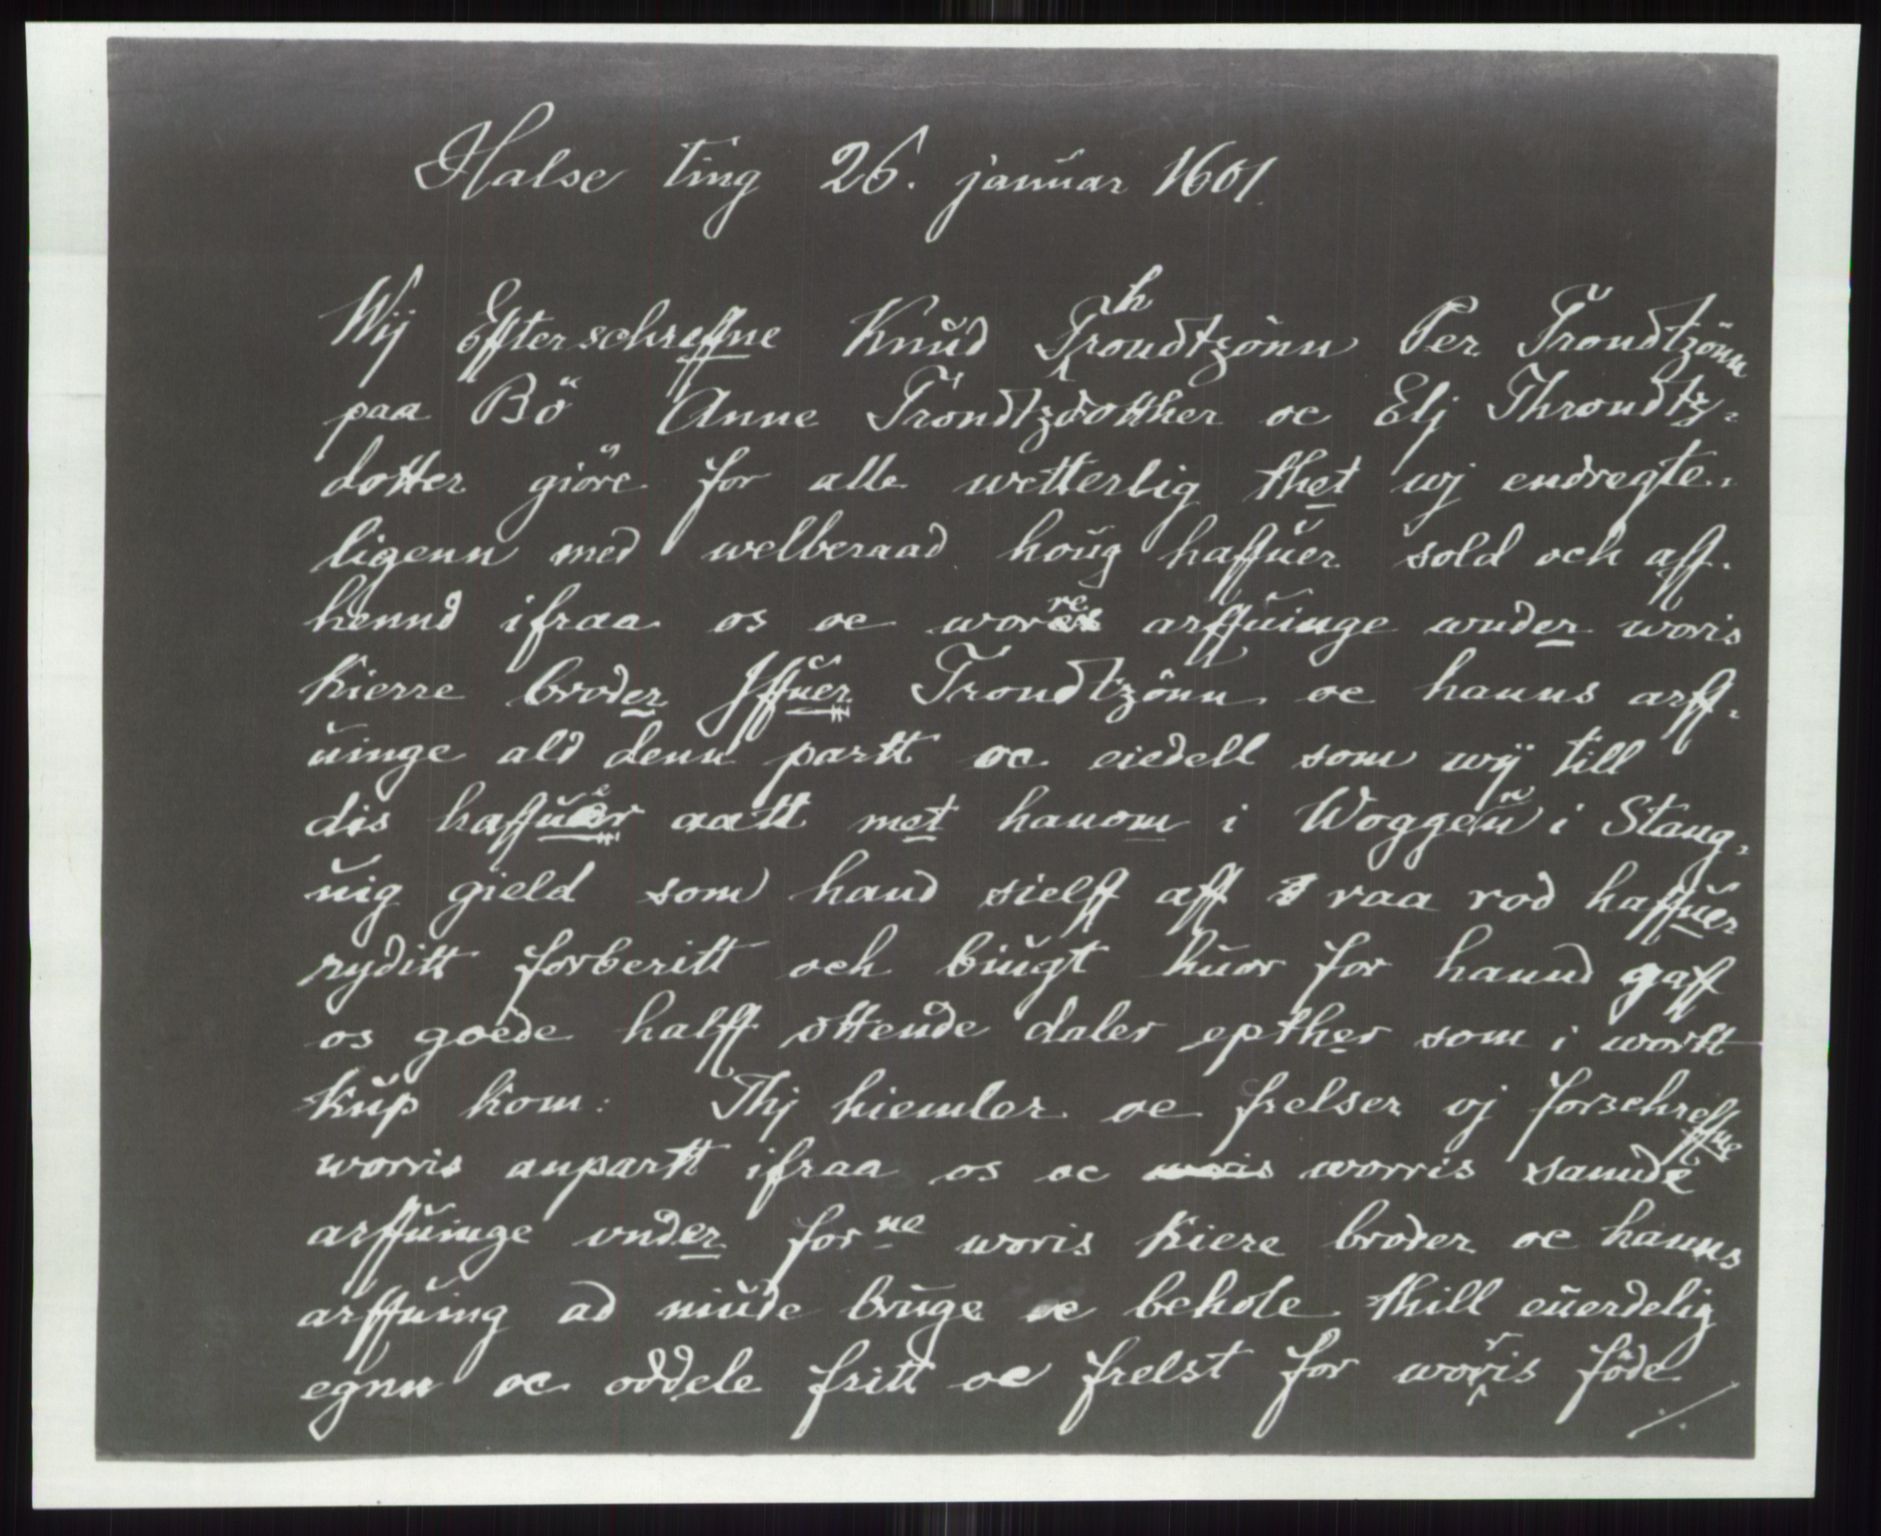 Halse ting 26. januar 1601.
Wij Effterschreffne Knud Throndtzönn Per Trondtzönn
paa Bö Anne Trondtzdotther oc Elj Throndtz-
dotter giöre for alle wetterlig thet wj endregte-
ligenn med welberaad houg haffuer sold och aff-
hennd ifraa os oc worre arffuinge wnder woris
kierre broder Jffuer Trondtzönn oc hanns arff-
uinge ald denn partt oc eiedell som wij till
dis haffuer aatt met hanom i Woggenn i Stang-
uig gield som hand sielff aff raa rod haffuer
ryditt forberitt och biugt huor for hannd gaff
os goede halff ottende daler epther som i wortt
kup kom: Thj hiemler oc frelser vj forschreffne
worris anpartt ifraa os oc woris worris samde
arffuinge vnder forne woris kiere broder oc hanns
arffuing ad niude bruge oc behole thill euerdelig
egnn oc oddele fritt oc frelst for worris föde